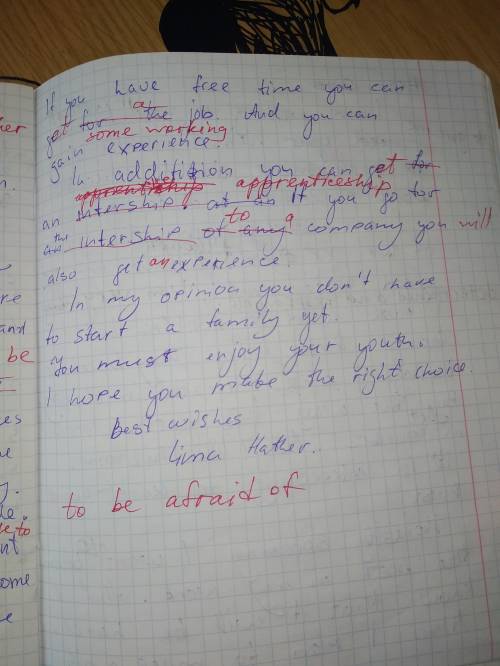 If you have free time you can
a
get for the job. And you can
some working
gain experience.
In addidition you can get for
apprenticeship
an intership. at an If you go for
the to a
intership of any company you will
also get an experience.
In my opinion you don't have
to start a family yet.
You must enjoy your youth.
I hope you make the right choice.
Best wishes
Lina Hather.
to be afraid of
and
be
some